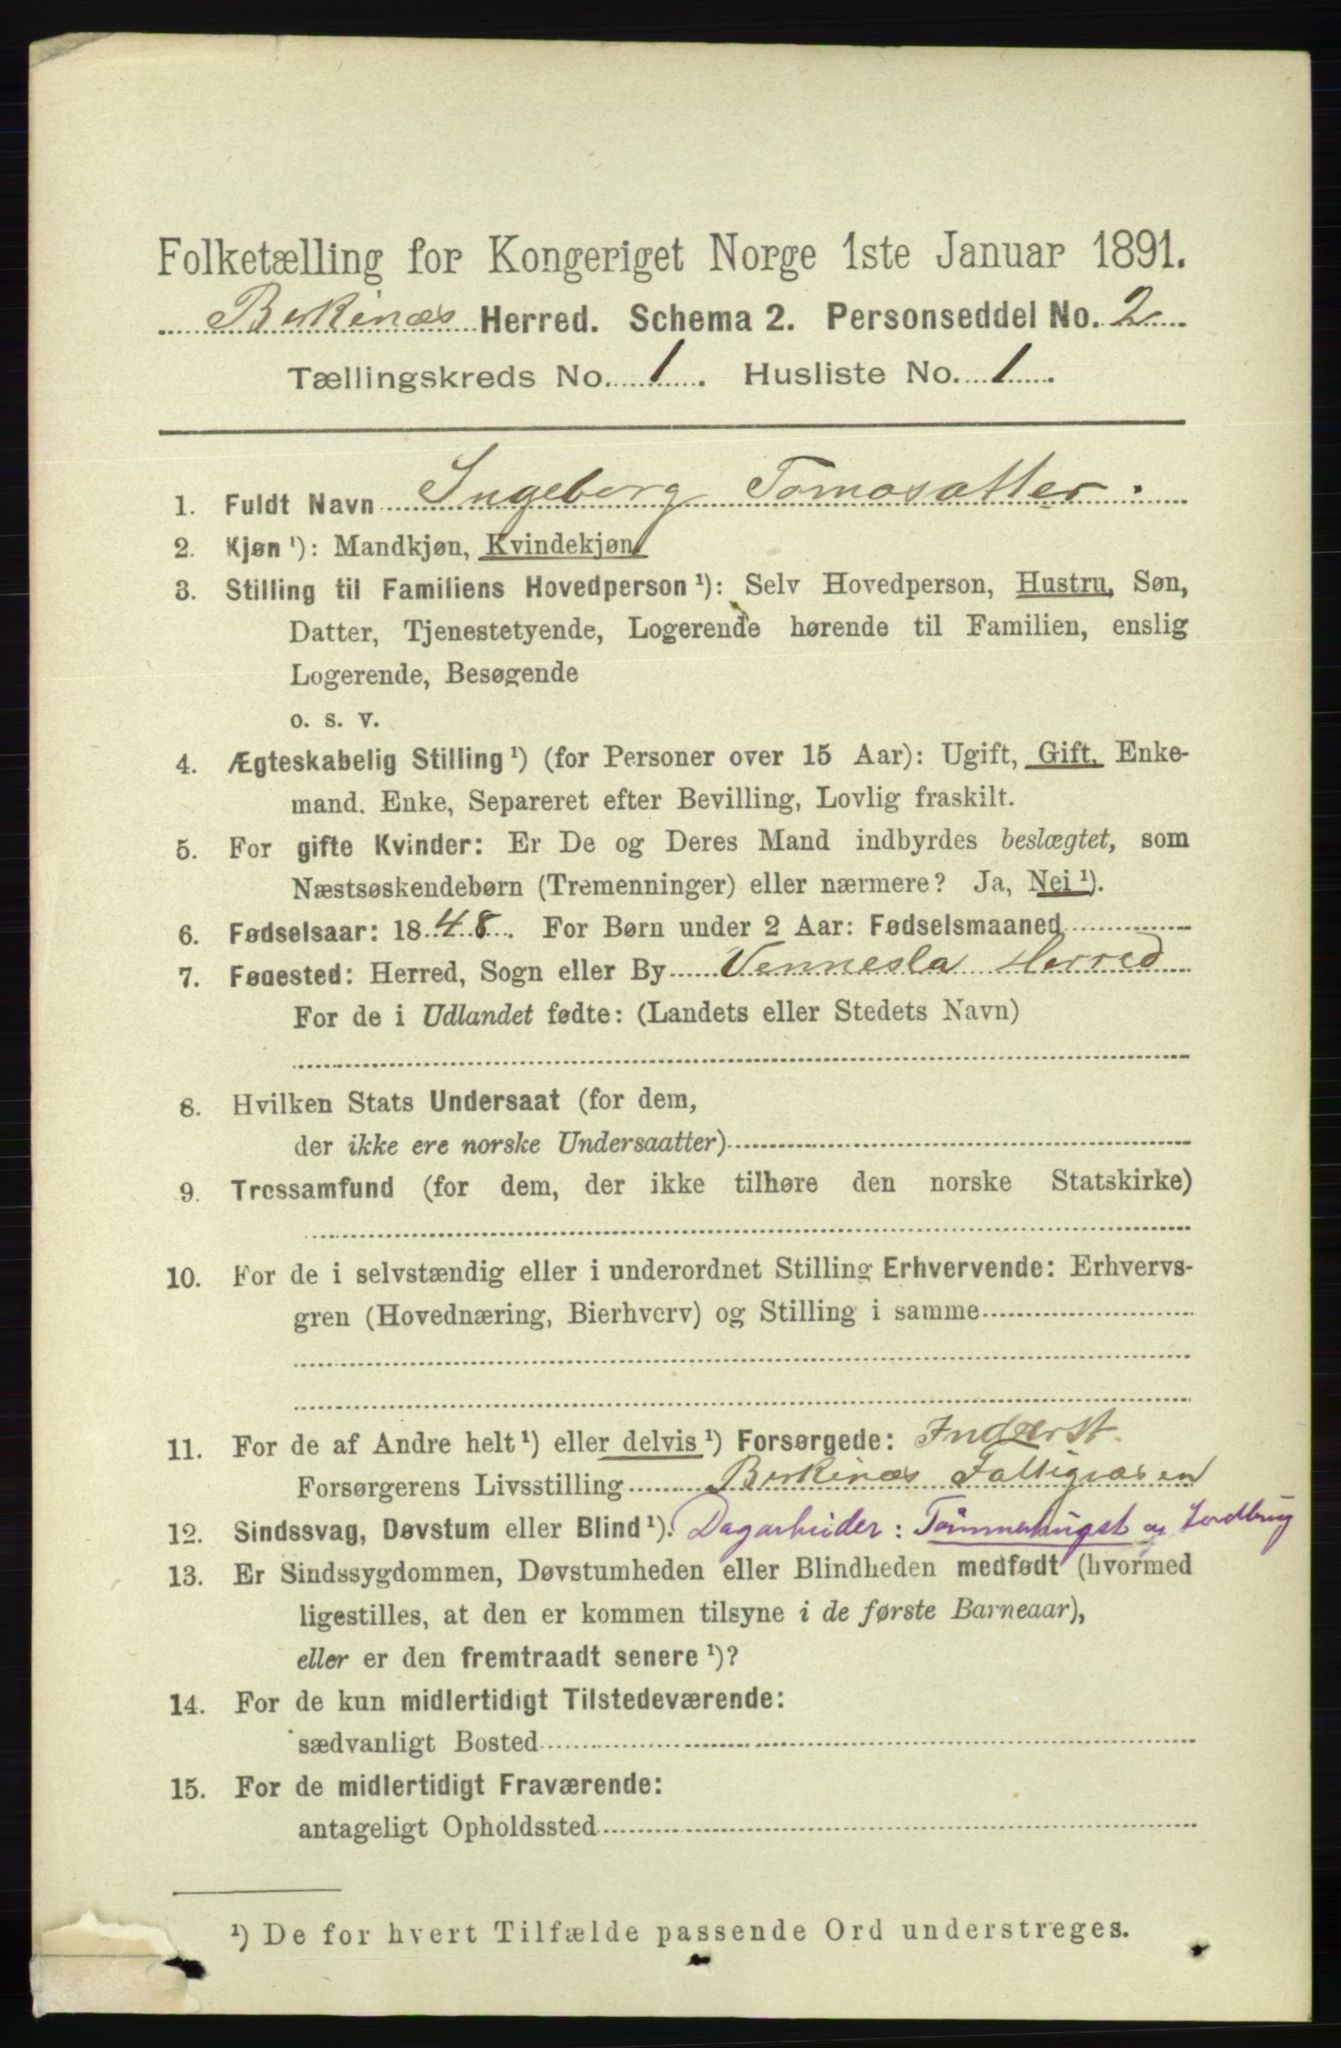 Folketælling for Kongeriget Norge 1ste Januar 1891.
Birkenæs Herred. Schema 2. Personseddel No. 2
Tællingskreds No. 1. Husliste No. 1
1. Fuldt Navn Ingeborg Tomasatter.
2. Kjøn ¹): Mandkjøn, Kvindekjøn
3. Stilling til Familiens Hovedperson ¹): Selv Hovedperson, Hustru, Søn,
Datter, Tjenestetyende, Logerende hørende til Familien, enslig
Logerende, Besøgende
o. s. v.
4. Ægteskabelig Stilling ¹) (for Personer over 15 Aar): Ugift, Gift, Enke-
mand. Enke, Separeret efter Bevilling, Lovlig fraskilt.
5. For gifte Kvinder: Er De og Deres Mand indbyrdes beslægtet, som
Næstsøskendebørn (Tremenninger) eller nærmere? Ja, Nei ¹).
6. Fødselsaar: 1848. For Børn under 2 Aar: Fødselsmaaned
7. Fødested: Herred, Sogn eller By Vennesla Herred
For de i Udlandet fødte: (Landets eller Stedets Navn)
8. Hvilken Stats Undersaat (for dem,
der ikke ere norske Undersaatter)
9. Trossamfund (for dem, der ikke tilhøre den norske Statskirke)
10. For de i selvstændig eller i underordnet Stilling Erhvervende: Erhvervs-
gren (Hovednæring, Bierhverv) og Stilling i samme
11. For de af Andre helt ¹) eller delvis ¹) Forsørgede: Inderst.
Forsørgerens Livsstilling Birkenæs
12. Sindssvag, Døvstum eller Blind ¹). Dagarbeider: Tømmerhugst og Jordbrug
13. Er Sindssygdommen, Døvstumheden eller Blindheden medfødt (hvormed
ligestilles, at den er kommen tilsyne i de første Barneaar),
eller er den fremtraadt senere ¹)?
14. For de kun midlertidigt Tilstedeværende:
sædvanligt Bosted
15. For de midlertidigt Fraværende:
antageligt Opholdssted
¹) De for hvert Tilfælde passende Ord understreges.